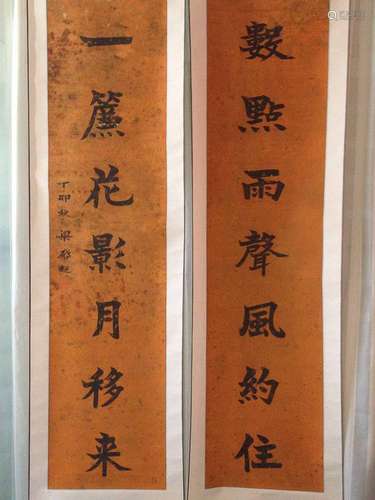 數點雨聲風約住
一簾花影月移来
丁卯秋 梁啟超